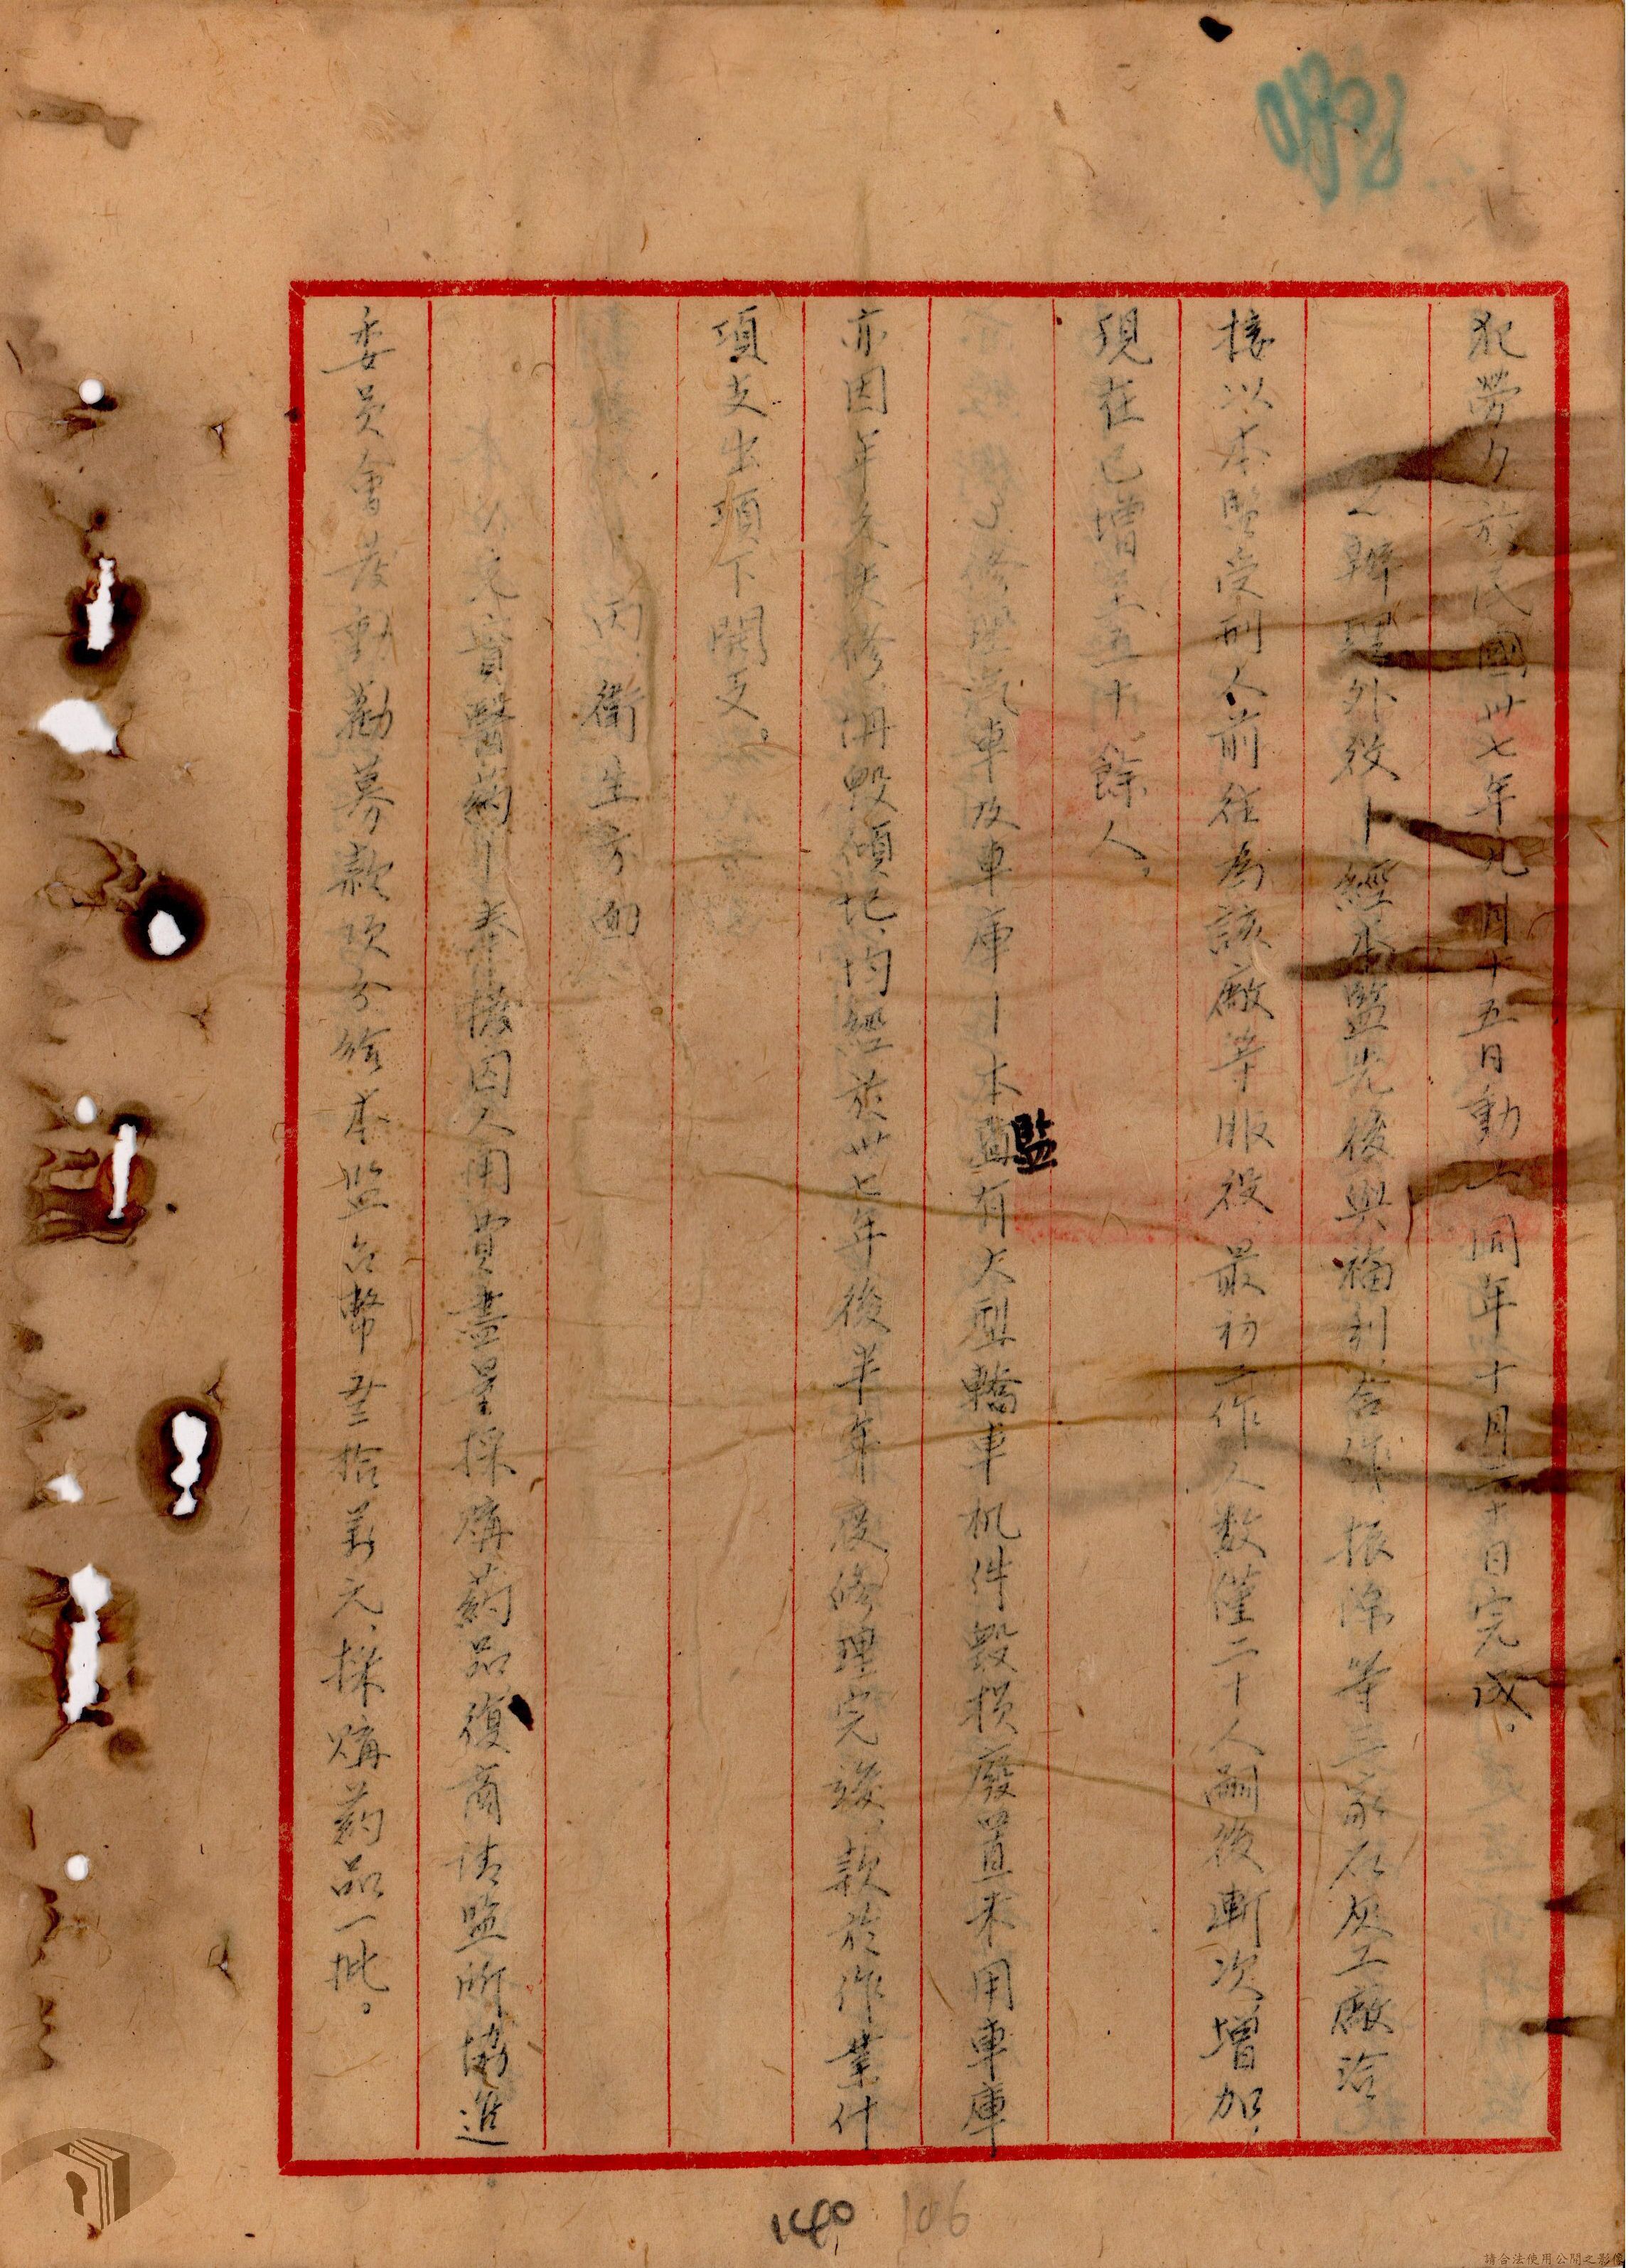 犯勞力於民國卅七年九月十五日動工同年十月二十日完成。
辦理外役—經本監先後與福利、合作、振添等三家石灰工廠洽
接以本監受刑人前往為該廠等服役最初工作人數僅二十人嗣後漸次增加，
現在已增至五十餘人。
修理汽車及車庫—本監有大型轎車机件毀損廢置未用車庫
亦因年久失修損毀傾圮均經於卅七年後半年度修理完竣、款於作業什
項支出項下開支。
丙、衛生方面
醫藥—奉撥囚人用費盡量採購药品復商請監所協進
委員會發動勸募款項分給本監台幣 拾萬元、採購药品一批。
監
140
106
請合法使用公開之影像